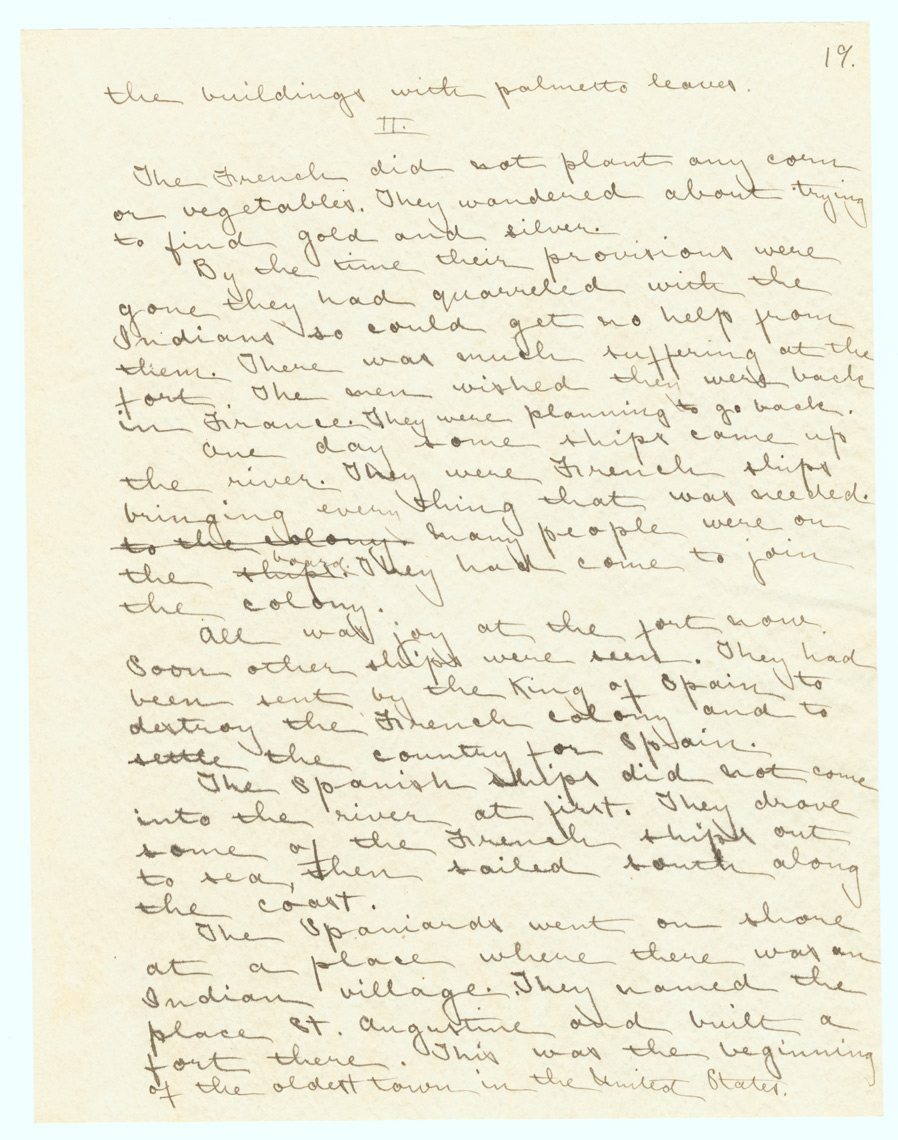 19.
the buildings with palmetto leaves.
II.
The French did not plant any corn
or vegetables. They wandered about trying
to find gold and silver.
By the time their provisions were
gone they had quarreled with the
Indians so could get no help from
them. There was much suffering at the
fort. The men wished they were back
in France. They were planning to go back.
One day some ships came up
the river. They were French ships
bringing every thing that was needed.
to the colony. Many people were on
board.
the ships. They had come to join
the colony.
All was joy at the fort now.
Soon other ships were seen. They had
been sent by the King of Spain to
destroy the French colony and to
settle the country for Spain.
The Spanish ships did not come
into the river at first. They drove
some of the French ships out
to sea, then sailed south along
the coast.
The Spaniards went on shore
at a place where there was an
Indian village. They named the
place St. Augustine and built a
fort there. This was the beginning
of the oldest town in the United States.